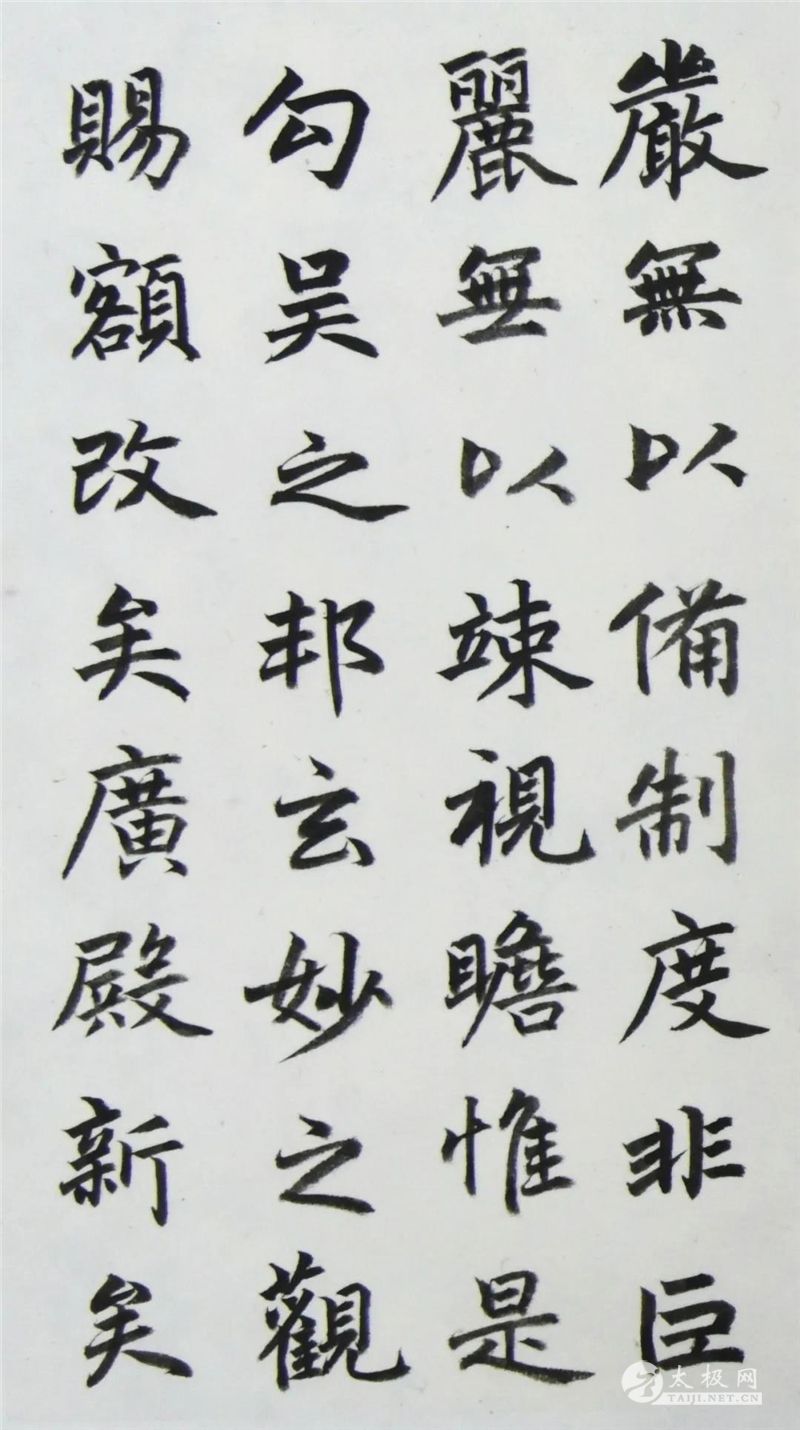 嚴無以備制度非巨
麗無以竦視瞻惟是
勾吴之邦玄妙之觀
賜額改矣廣殿新矣
太极网
TAIJI.NET.CN